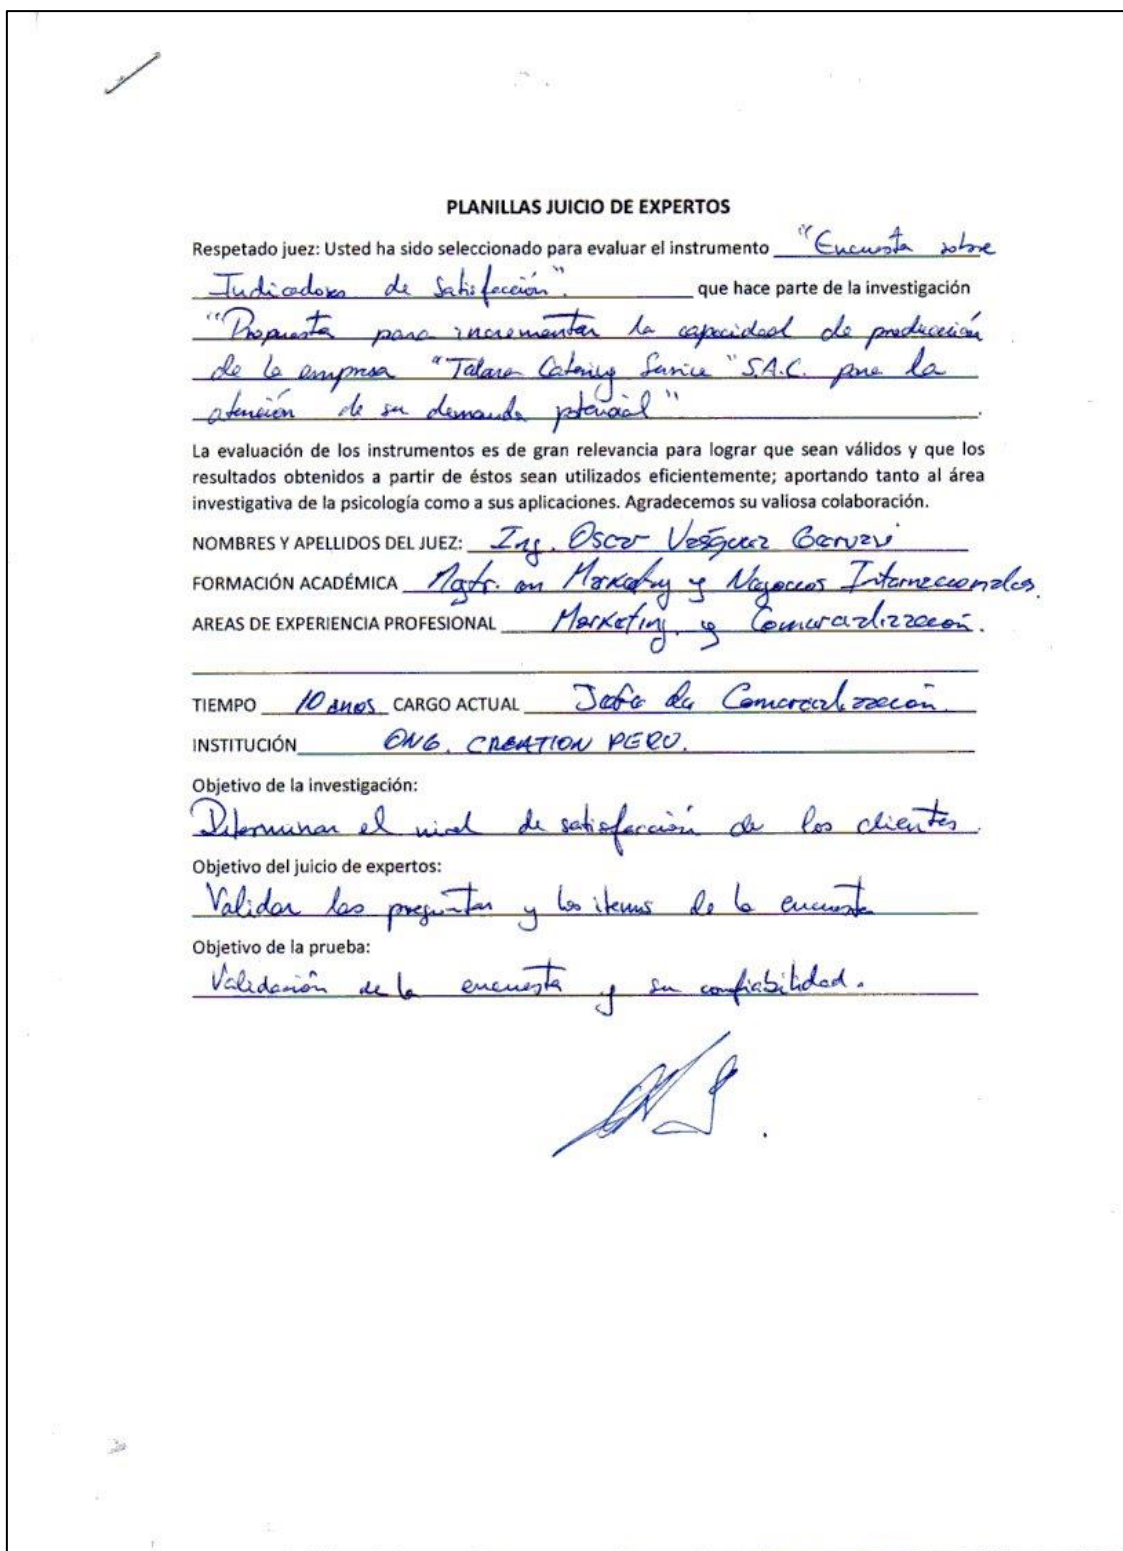 PLANILLAS JUICIO DE EXPERTOS
Respetado juez: Usted ha sido seleccionado para evaluar el instrumento "Encuesta sobre
Indicadores de Satisfacción". que hace parte de la investigación
"Propuesta para incrementar la capacidad de producción
de la empresa "Talara Catering Service" S.A.C. para la
atención de su demanda potencial".
La evaluación de los instrumentos es de gran relevancia para lograr que sean válidos y que los
resultados obtenidos a partir de éstos sean utilizados eficientemente; aportando tanto al área
investigativa de la psicología como a sus aplicaciones. Agradecemos su valiosa colaboración.
NOMBRES Y APELLIDOS DEL JUEZ: Ing. Oscar Vásquez
FORMACIÓN ACADÉMICA Mgtr. en Marketing y Negocios Internacionales.
AREAS DE EXPERIENCIA PROFESIONAL Marketing y Comercialización.
TIEMPO 10 años CARGO ACTUAL Jefe de Comercialización.
INSTITUCIÓN ONG. CREATION PERU.
Objetivo de la investigación:
Determinar el nivel de satisfacción de los clientes.
Objetivo del juicio de expertos:
Validar las preguntas y los items de la encuesta
Objetivo de la prueba:
Validación de la encuesta y su confiabilidad.